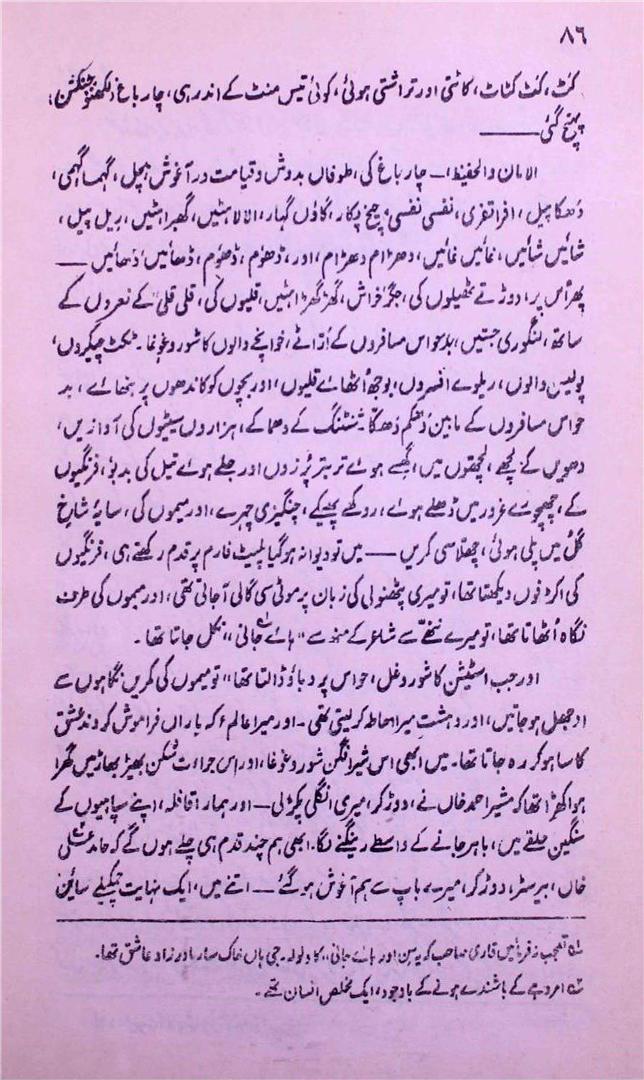 ۸۶
کٹ، کٹ کٹاٹ، کاٹتی اور تراشتی ہوئی، کوئی تیس منٹ کے اندر ہی، چار باغ (لکھنؤ جنکشن)
پہنچ گئی ــــــ
الامان والحفیظ، ــ چار باغ کی، طوفاں بدوش و قیامت در آغوش ہلچل، گہما گہمی،
دھکا پیل، افرا تفری، نفسی نفسی، چیخ پکار، گاؤں گہار، اللاہٹیں، گھبراہٹیں، ریل پیل،
شائیں شائیں، غائیں غائیں، دھڑام دھڑام، اور، دھوم، دھوم، ڈھائیں ڈھائیں ــ
پھر اُس پر، دوڑتے ٹھیلوں کی، جگر خراش، گھڑ گھڑاہٹیں، قلیوں کی، قلی قلی کے نعروں کے
ساتھ، لنگوری جستیں، بدحواس مسافروں کے اُڑاٹے، خوانچے والوں کا شور و غوغا۔ ٹکٹ چیکروں،
پولیس والوں، ریلوے افسروں، بوجھ اُٹھائے قلیوں، اور بچوں کو کاندھوں پر بٹھائے، بد
حواس مسافروں کے مابین دُھکم دھکا۔ شنٹنگ کے دھماکے، ہزاروں سیٹیوں کی آوازیں،
دھویں کے لچھے، لچھّوں میں، گھسے ہوئے تربتر پُرزوں اور جلے ہوئے تیل کی بدبو، فرنگیوں
کے، چھچورے غرور میں ڈھلے ہوئے، روکھے پھیکے، چنگیزی چہرے، اور میموں کی، سایۂ شاخِ
گُل میں پلی ہوئی، چھلا سی کمریں ــ میں تو دیوانہ ہوگیا پلیٹ فارم پر قدم رکھتے ہی، فرنگیوں
کی اکڑفوں دیکھتا تھا، تو میری پٹھنولی کی زبان پر موٹی سی گالی آجاتی تھی، اور میموں کی طرف
نگاہ اُٹھاتا تھا، تو میرے ننھے سے شاعر کے منہ سے "ہائے جانی" نکل جاتا تھا۔
اور جب اسٹیشن کا شور و غل، حواس پر دباؤ ڈالتا تھا، تو میموں کی کمریں نگاہوں سے
اوجھل ہو جاتیں، اور دہشت میرا احاطہ کر لیتی تھی۔ اور میرا عالم، کہ یاراں فراموش کردند عشق
کا سا ہو کر رہ جاتا تھا۔ میں ابھی اس شیر افگن شور و غوغا، اور اس جراءت شکن بھیڑ بھاڑ میں گھرا
ہوا کھڑا تھا کہ مشیر احمد خاں نے، دوڑ کر، میری انگلی پکڑ لی ــ اور ہمارا قافلہ، اپنے سپاہیوں کے
سنگین حلقے میں، باہر جانے کے واسطے رینگنے لگا۔ ابھی ہم چند قدم ہی چلے ہوں گے کہ حامد علی
خاں، بیرسٹر، دوڑ کر، میرے باپ سے ہم آغوش ہو گئے ــ اتنے میں، ایک نہایت چمکیلے سائن
تعجب نہ فرمائیں قاری صاحب کہ یہ سن اور ہائے جانی، کا ولولہ۔ جی ہاں خاکسار مادر زاد عاشق تھا۔
امروہے کے باشندے ہونے کے باوجود، ایک مخلص انسان تھے۔